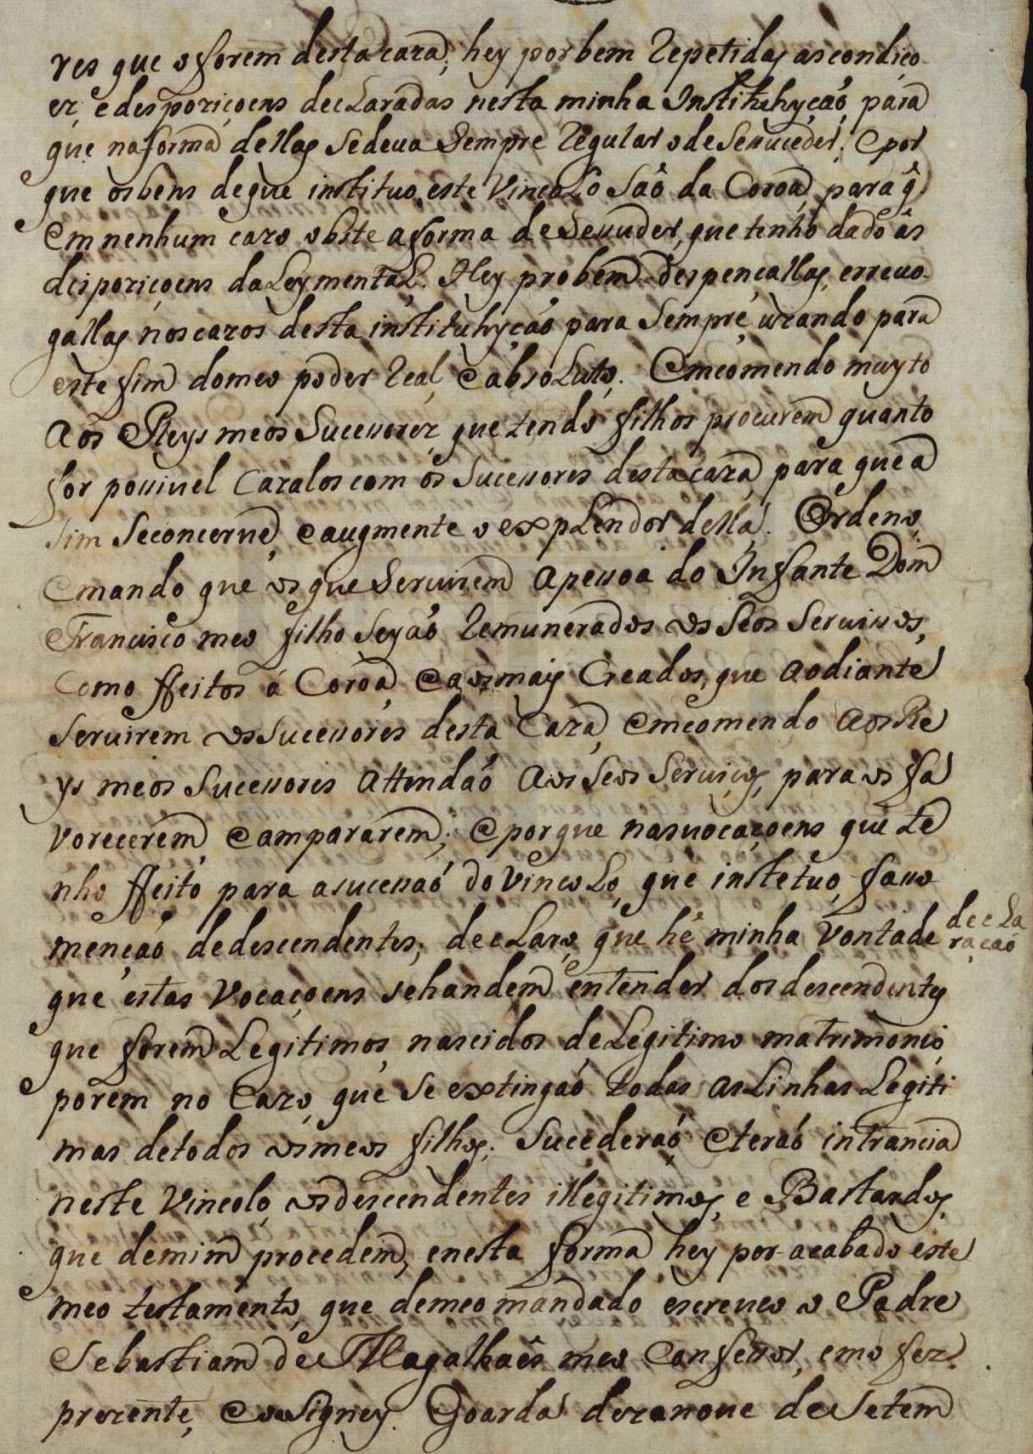 res que o forem desta caza, hey por bem repetidas as condiço-
ez, e despoziçoens declaradas nesta minha Instituhyção, para
que na forma dellas se deva sempre regular o de Sensuceder; e por
que os bens de que instituo este Vincolo são da Coroa, para q̃
em nenhum cazo obste a forma de Sensuder, que tenho dado ás
dispoziçoens da Ley mental. Hey pro bem despencallas, e revo-
gallas nos cazos desta instituhyção para sempre, uzando para
este fim do meo poder Real, e absoluto. Emcomendo muyto
aos Reys meos sucessorez que tendo filhos procurem quanto
for possivel cazalos com os sucessores desta caza para que a
sim se concerve, e augmente o explendor della. Ordeno,
e mando que os que servirem a pessoa do Infante Dom
Francisco meo filho sejão remunerados os seos servissos,
como ffeitos á Coroa e aos mais Creados, que ao diante
servirem os sucessores desta Caza, emcomendo aos Re
ys meos sucessores attendão aos seos serviços, para os fa
vorecerem, e ampararem; e porque nas vocaçoens que te
nho ffeito para a sucessaó do Vincolo, que instetuo, fasso
menção de descendentes; declaro, que hé minha vontade
declaração
que estas vocaçoens se handem entender dos descendentes
que forem Legitimos nascidos de Legitimo matrimonio
porem no cazo, que se extingaó todas as Linhas Legiti
mas de todos os meos filhos; sucederaó, e teraó intrancia
neste Vincolo, os descendentes illegitimos, e Bastardos,
que de mim procedem, e nesta forma hey por acabado este
meo testamento, que de meo mandado escreveo o Padre
Sebastiam de Magalhaês meo Confessor, e mo fez
prezente, e o Signey. Goarda dezanove de Setem